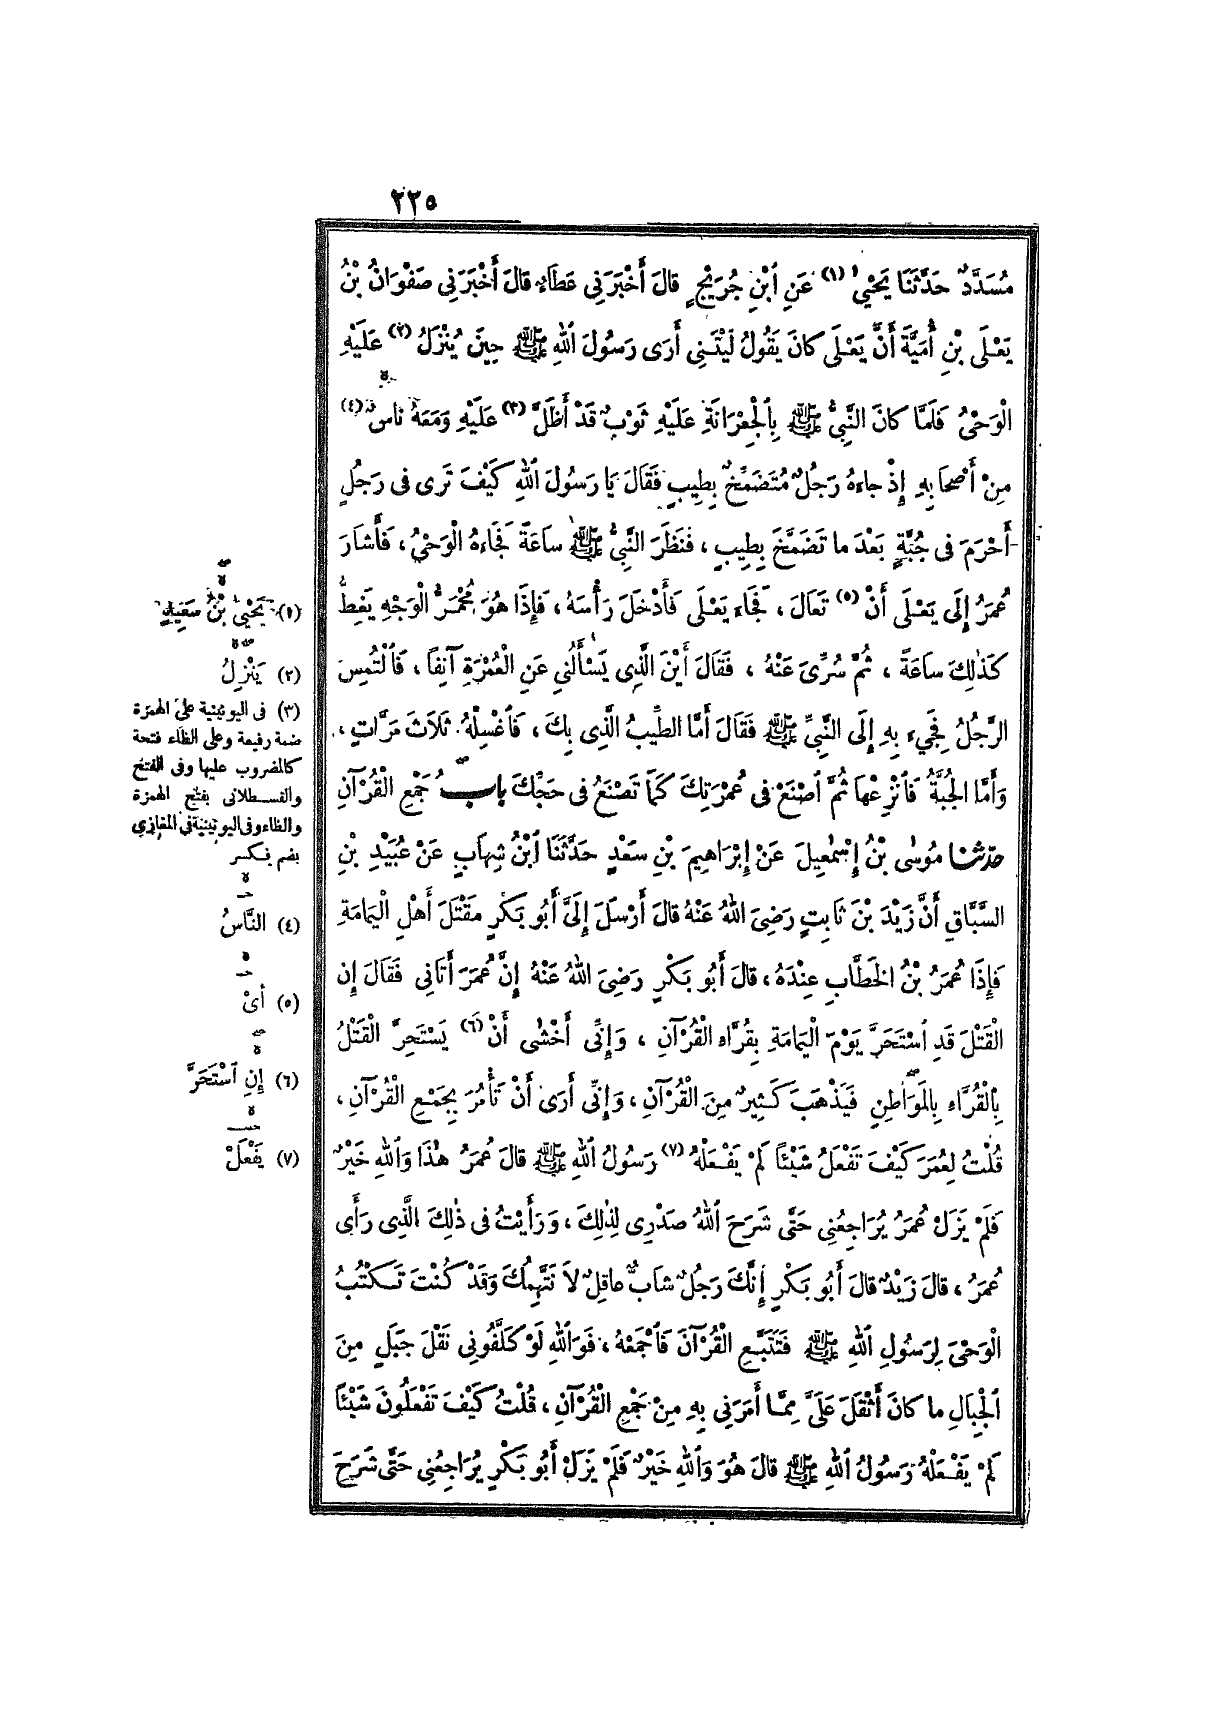 ٢٢٥
مُسَدَّدٌ حَدَّثَنَا يَحْيىٰ (١) عَنِ ٱبْنِ جُرَيْجٍ قالَ أَخْبَرَنِي عَطَاءٌ قالَ أَخْبَرَنِي صَفْوَانُ بْنُ
يَعْلَى بْنِ أُمَيَّةَ أَنَّ يَعْلَى كانَ يَقُولُ لَيْتَنِي أَرَى رَسُولَ ٱللهِ ﷺ حِينَ يُنْزَلُ (٢) عَلَيْهِ
الْوَحْىُ فَلَمَّا كانَ النَّبِىُّ ﷺ بِٱلْجِعْرَانَةِ عَلَيْهِ ثَوْبٌ قَدْ أَظَلَّ (٣) عَلَيْهِ وَمَعَهُ ناسٌ (٤)
مِنْ أَصْحَابِهِ إِذْ جاءَهُ رَجُلٌ مُتَضَمِّخٌ بِطِيبٍ فَقَالَ يَا رَسُولَ ٱللهِ كَيْفَ تَرَى فى رَجُلٍ
أَحْرَمَ فى جُبَّةٍ بَعْدَ ما تَضَمَّخَ بِطِيبٍ ، فَنَظَرَ النَّبِىُّ ﷺ ساعَةً فَجَاءَهُ الْوَحْىُ ، فَأَشارَ
عُمَرُ إِلَى يَعْلَى أَنْ (٥) تَعَالَ ، فَجَاءَ يَعْلَى فَأَدْخَلَ رَأْسَهُ ، فَإِذَا هُوَ مُحْمَرُّ الْوَجْهِ يَغِطُّ
كَذٰلِكَ ساعَةً ، ثُمَّ سُرِّىَ عَنْهُ ، فَقَالَ أَيْنَ الَّذِى يَسْأَلُنِي عَنِ الْعُمْرَةِ آنِفًا ، فَٱلْتُمِسَ
الرَّجُلُ فَجِىءَ بِهِ إِلَى النَّبِيِّ ﷺ فَقَالَ أَمَّا الطِّيبُ الَّذِى بِكَ ، فَٱغْسِلْهُ ثَلاَثَ مَرَّاتٍ ،
وَأَمَّا الْجُبَّةُ فَٱنْزِعْهَا ثُمَّ ٱصْنَعْ فى عُمْرَتِكَ كَمَا تَصْنَعُ فى حَجِّكَ باب جَمْعِ الْقُرْآنِ
حدّثنا مُوسٰى بْنُ إِسْمٰعِيلَ عَنْ إِبْرَاهِيمَ بْنِ سَعْدٍ حَدَّثَنَا ٱبْنُ شِهَابٍ عَنْ عُبَيْدِ بْنِ
السَّبَّاقِ أَنَّ زَيْدَ بْنَ ثَابِتٍ رَضِىَ ٱللهُ عَنْهُ قالَ أَرْسَلَ إِلَىَّ أَبُو بَكْرٍ مَقْتَلَ أَهْلِ الْيَمَامَةِ
فَإِذَا عُمَرُ بْنُ الْخَطَّابِ عِنْدَهُ ، قالَ أَبُو بَكْرٍ رَضِىَ ٱللهُ عَنْهُ إِنَّ عُمَرَ أَتَانِي فَقَالَ إِنَّ
الْقَتْلَ قَدِ ٱسْتَحَرَّ يَوْمَ الْيَمَامَةِ بِقُرَّاءِ الْقُرْآنِ ، وَإِنِّي أَخْشٰى أَنْ (٦) يَسْتَحِرَّ الْقَتْلُ
بِٱلْقُرَّاءِ بِالْمَوَاطِنِ فَيَذْهَبَ كَثِيرٌ مِنَ الْقُرْآنِ ، وَإِنِّي أَرَى أَنْ تَأْمُرَ بِجَمْعِ الْقُرْآنِ ،
قُلْتُ لِعُمَرَ كَيْفَ تَفْعَلُ شَيْئًا لَمْ يَفْعَلْهُ (٧) رَسُولُ ٱللهِ ﷺ قالَ عُمَرُ هٰذَا وَٱللهِ خَيْرٌ
فَلَمْ يَزَلْ عُمَرُ يُرَاجِعُنِي حَتَّى شَرَحَ ٱللهُ صَدْرِى لِذٰلِكَ ، وَرَأَيْتُ فى ذٰلِكَ الَّذِى رَأَى
عُمَرُ ، قالَ زَيْدٌ قالَ أَبُو بَكْرٍ إِنَّكَ رَجُلٌ شابٌّ عاقِلٌ لاَ نَتَّهِمُكَ وَقَدْ كُنْتَ تَكْتُبُ
الْوَحْىَ لِرَسُولِ ٱللهِ ﷺ فَتَتَبَّعِ الْقُرْآنَ فَٱجْمَعْهُ ، فَوَٱللهِ لَوْ كَلَّفُونِي نَقْلَ جَبَلٍ مِنَ
ٱلْجِبَالِ ما كانَ أَثْقَلَ عَلَىَّ مِمَّا أَمَرَنِي بِهِ مِنْ جَمْعِ الْقُرْآنِ ، قُلْتُ كَيْفَ تَفْعَلُونَ شَيْئًا
لَمْ يَفْعَلْهُ رَسُولُ ٱللهِ ﷺ قالَ هُوَ وَٱللهِ خَيْرٌ فَلَمْ يَزَلْ أَبُو بَكْرٍ يُرَاجِعُنِي حَتَّى شَرَحَ
(١) يَحْيىٰ بْنُ سَعِيدٍ
(٢) يَنْزِلُ
(٣) فى اليونينية على الهمزة
ضمة رفيعة وعلى الظاء فتحة
كالمضروب عليها وفى الفتح
والقسطلانى بفتح الهمزة
والظاء وفى اليونينية فى المغازى
بضم فكسر
(٤) النَّاسُ
(٥) أَىْ
(٦) إِنِ ٱسْتَحَرَّ
(٧) يَفْعَلْ